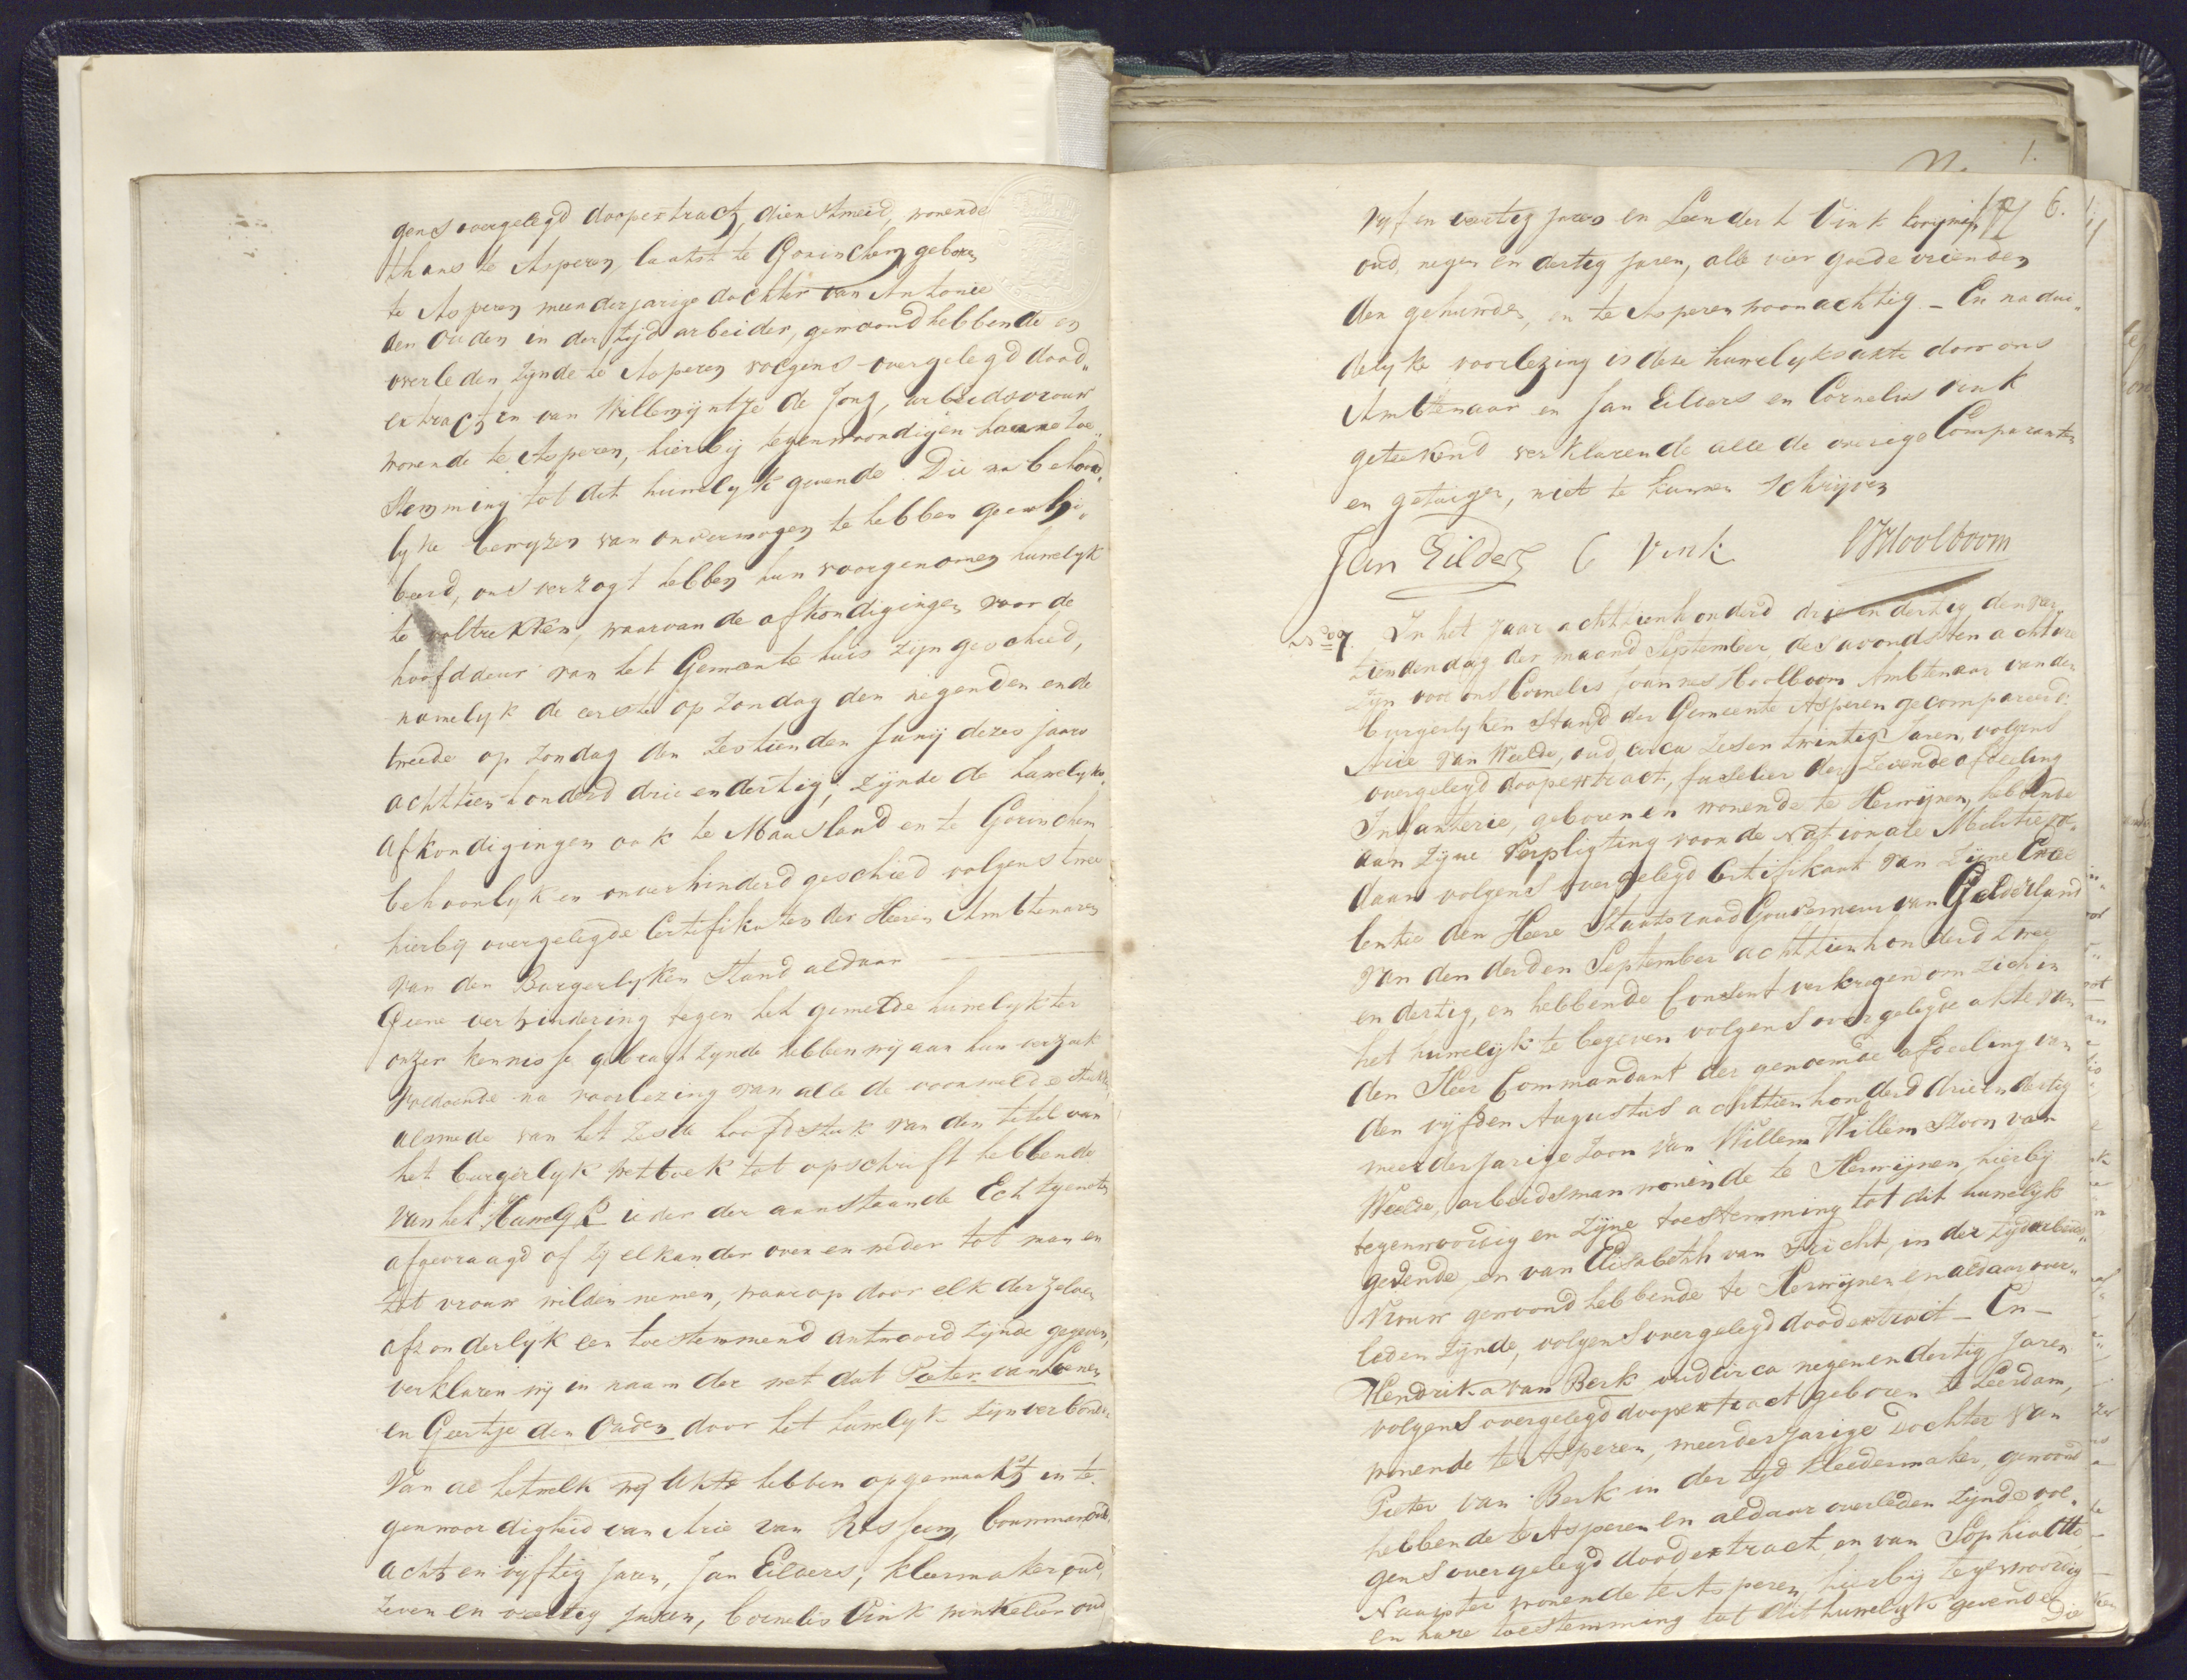 gens overgelegd doopextract, dienstmeid, wonende
thans te Asperen, laatst te Gorinchem, geboren
te Asperen meerderjarige dochter van Antonie
den Ouden in der tyd arbeider, gewoond hebbende en
overleden zynde te Asperen volgens overgelegd dood„
extract, en van Willemyntje de Jong, arbeidsvrouw
wonende te Asperen, hierbij tegenwoordig en hare toe„
stemming tot dit huwelyk gevende. Die na behoor„
lyke bewyzen van onvermogen te hebben geexhi„
beerd, ons verzogt hebben hun voorgenomen huwelyk
te voltrekken, waarvan de afkondigingen voor de
hoofddeur van het Gemeente huis zijn geschied,
namelyk de eerste op zondag den negenden en de
tweede op zondag den zestienden Junij dezes jaars
achttien honderd drie en dertig, zijnde de huwelyks
afkondigingen ook te Maasland en te Gorinchem
behoorlyk en onverhinderd geschied volgens twee
hierbij overgelegde Certifikaten der Heeren Ambtenaren
van den Burgerlyken Stand aldaar
Geene verhindering tegen het gemelde huwelyk ter
onzer kennisse gebragt zynde hebben wij aan hun verzoek
voldoende na voorlezing van alle de voormelde stukken
alsmede van het zesde hoofdstuk van den titel van
het burgerlyk wetboek tot opschrift hebbende
van het Huwelyk ieder der aanstaande Echtgenoten
afgevraagd of zij elkander over en weder tot man en
tot vrouw wilden nemen, waarop door elk derzelver
afzonderlyk een toestemmend antwoord zijnde gegeven,
verklaren wij in naam der wet dat Pieter van Loenen
en Geertje den Ouden door het huwelyk zijn verbonden
Van al hetwelk wij Akte hebben opgemaakt in te„
genwoordigheid van Arie van Rossum, bouwman oud
acht en vyftig jaren, Jan Eilders, kleermaker oud
zeven en veertig jaren, Cornelis Vink winkelier oud
6.
vyf en veertig jaren en Leendert Vink
oud, negen en dertig jaren, alle vier goede vrienden
der gehuwden, en te Asperen woonachtig. – En na dui„
delyke voorlezing is deze huwelyksakte door ons
Ambtenaar en Jan Eilders en Cornelis Vink
geteekend verklarende alle de overige Comparanten
en getuigen, niet te kunnen schrijven
Jan Eilders C Vink CJHoolboom
No 7. In het jaar achttienhonderd drie en dertig den veer„
tienden dag der maand September, des avonds ten acht ure
zijn voor ons Cornelis Joannes Hoolboom Ambtenaar van den
burgerlyken Stand der Gemeente Asperen gecompareerd:
Arie van Weelde, oud circa zes en twintig Jaren, volgens
overgelegd doopextract, fuselier der zevende afdeeling
Infanterie, geboren en wonende te Herwijnen, hebbende
aan zijne verpligting voor de Nationale Militie vol„
daan volgens overgelegd Certifikaat van Zijne Excel„
lentie den Heere Staatsraad Gouverneur van Gelderland
van den derden September achttienhonderd twee
en dertig, en hebbende Consent verkregen om zich in
het huwelijk te begeven volgens overgelegde akte van
den Heer Commandant der genoemde afdeeling van
den vyfden Augustus achttienhonderd drie en dertig
meerderjarige Zoon van Willem Willem Zoon van
Weelde, arbeidsman wonende te Herwijnen, hierbij
tegenwoordig en zijne toestemming tot dit huwelijk
gevende, en van Elisabeth van Tricht, in der tijd arbeids„
vrouw gewoond hebbende te Herwijnen en aldaar over„
leden zijnde, volgens overgelegd doodextract – En –
Hendrika van Berk, oud circa negen en dertig Jaren
volgens overgelegd doopextract geboren te Leerdam,
wonende te Asperen, meerderjarige dochter van
Pieter van Berk in der tyd kleedermaker, gewoond
hebbende te Asperen en aldaar overleden zijnde vol„
gens overgelegd doodextract, en van Sophia
wonende te Asperen, hierbij tegenwoordig
en hare toestemming tot dit huwelijk gevende
Die